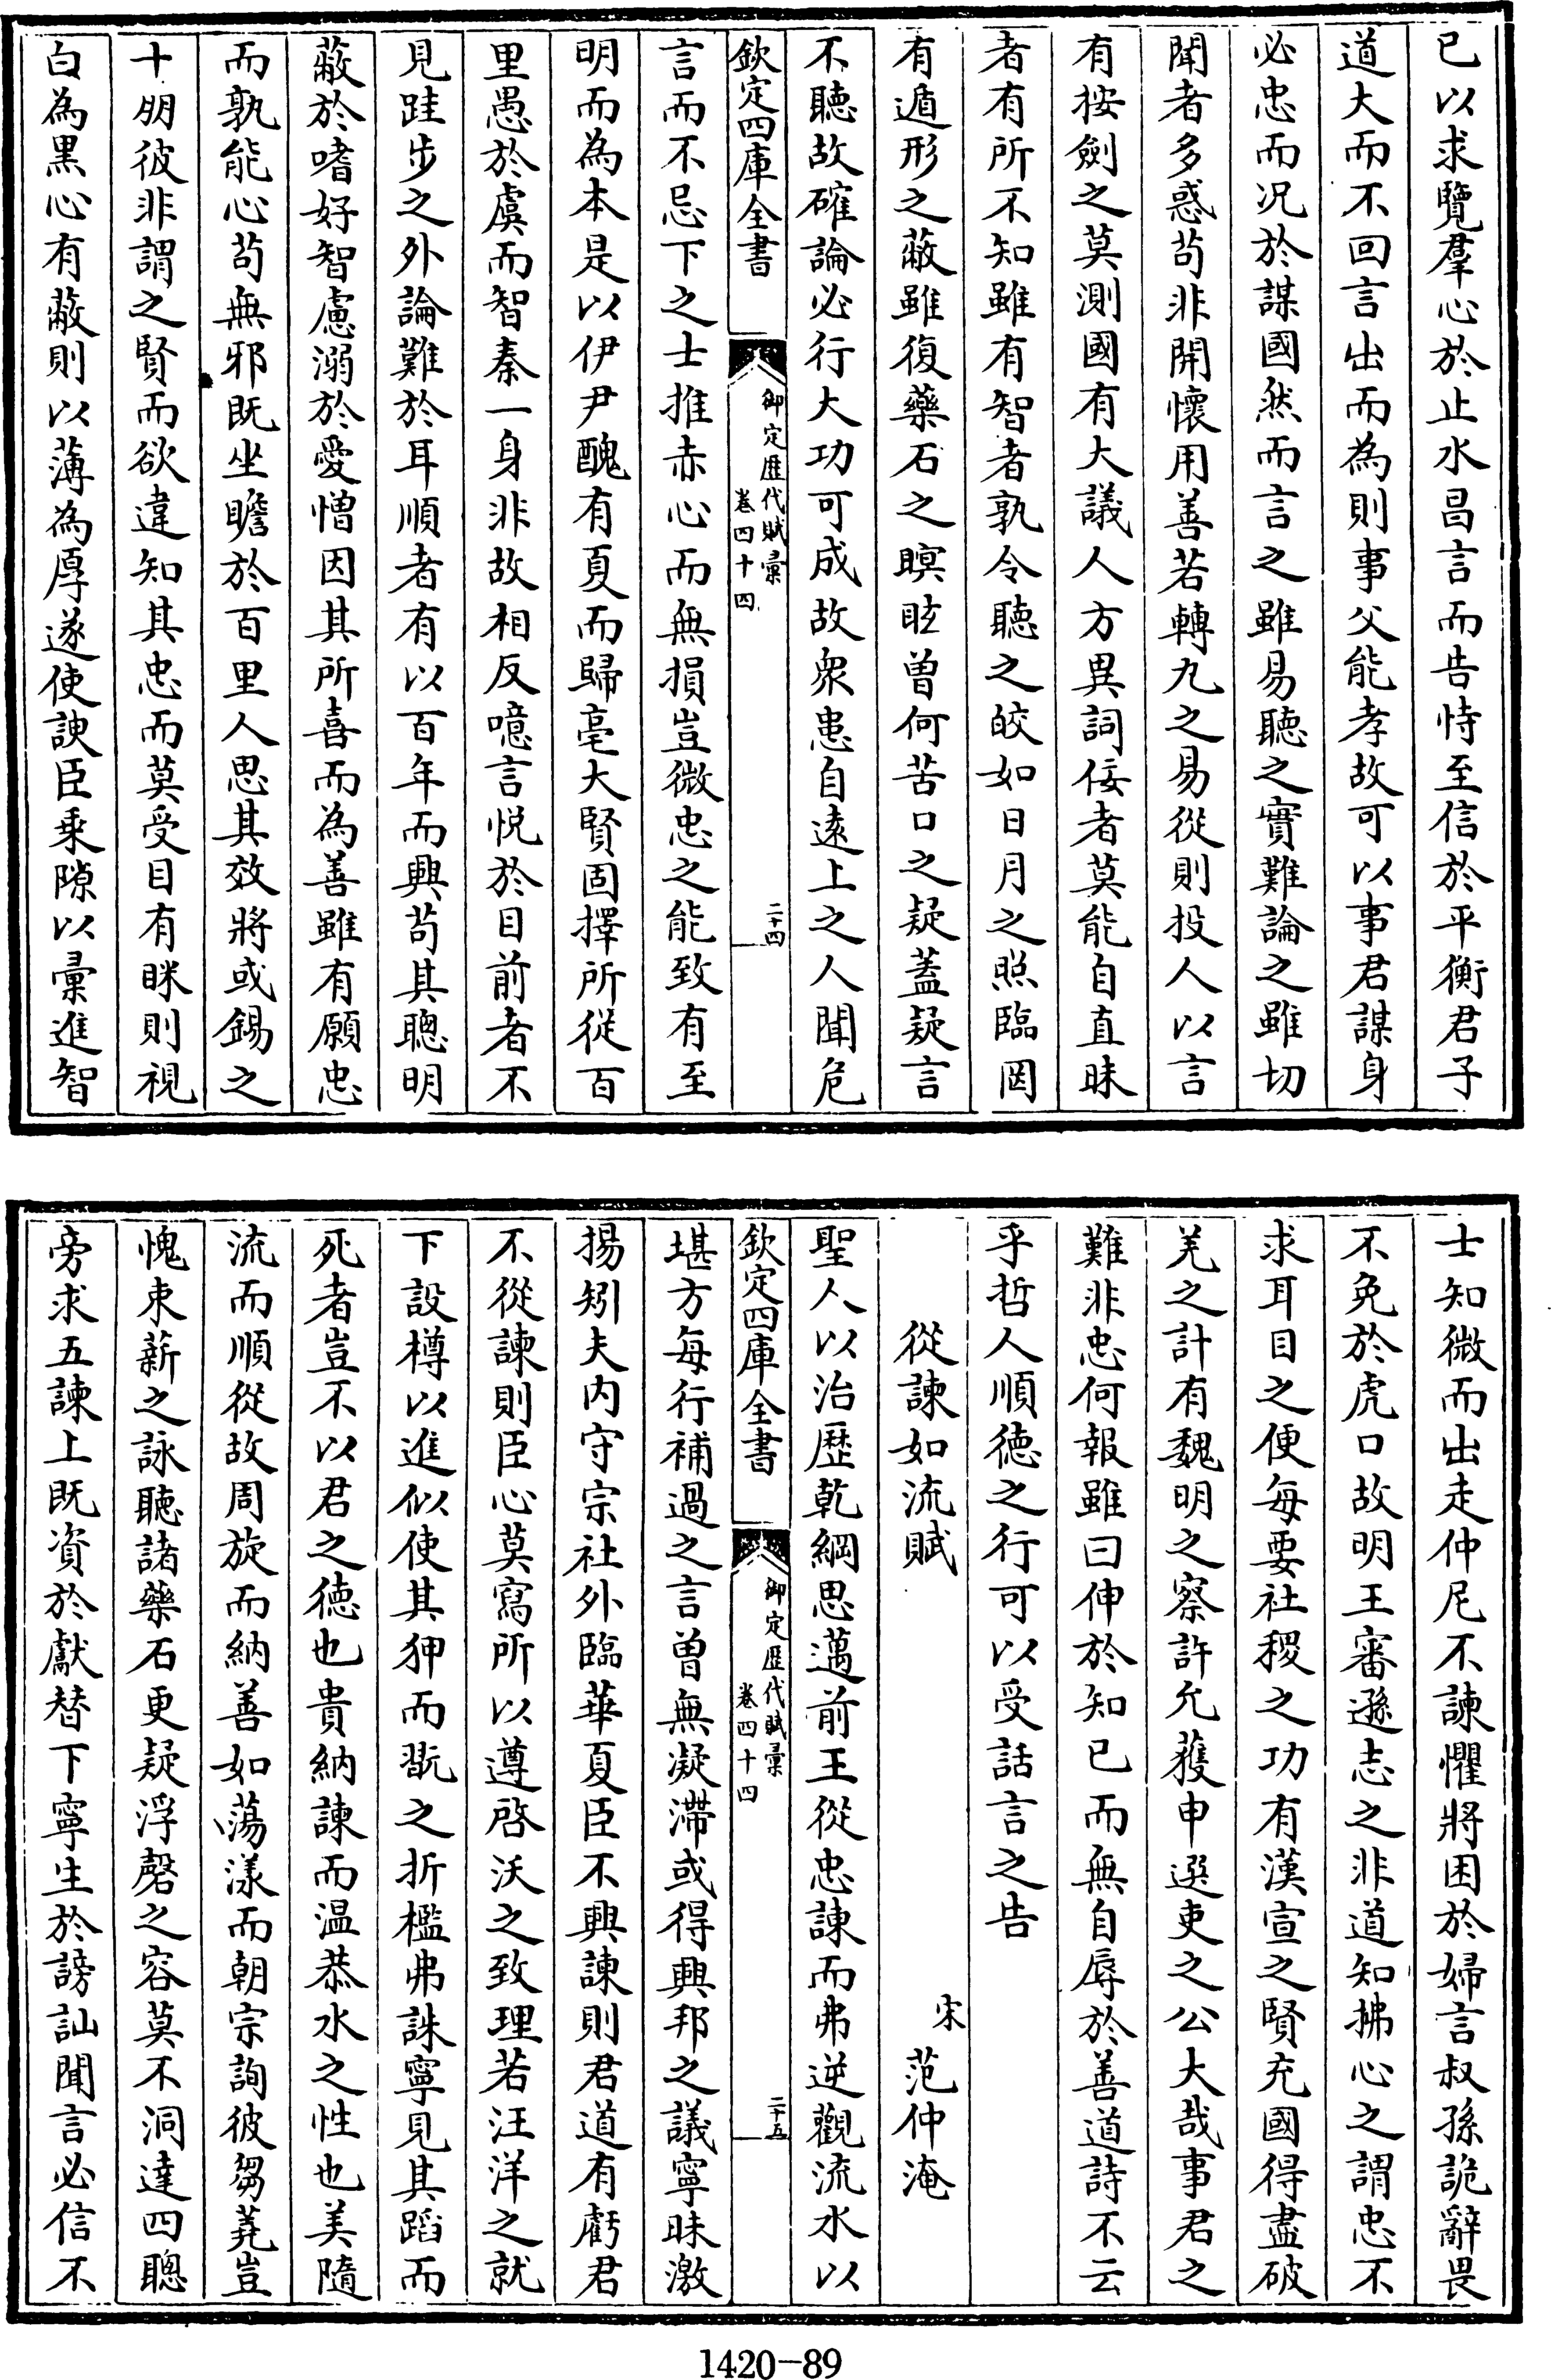 已以求覽羣心於止水昌言而告恃至信於平衡君子
道大而不回言出而為則事父能孝故可以事君謀身
必忠而況於謀國然而言之雖易聽之實難論之雖切
聞者多惑苟非開懷用善若轉九之易從則投人以言
有按劍之莫測國有大議人方異詞佞者莫能自直昧
者有所不知雖有智者孰令聽之皎如日月之照臨罔
有遁形之蔽雖復藥石之瞑眩曾何苦口之疑蓋疑言
不聽故確論必行大功可成故衆患自遠上之人聞危
欽定四庫全書
御定歷代賦彙
卷四十四
二十四
言而不忌下之士推赤心而無損豈微忠之能致有至
明而為本是以伊尹醜有夏而歸亳大賢固擇所從百
里愚於虞而智秦一身非故相反噫言悅於目前者不
見跬步之外論難於耳順者有以百年而興苟其聰明
蔽於嗜好智慮溺於愛憎因其所喜而為善雖有願忠
而孰能心苟無邪既坐瞻於百里人思其效將或錫之
十朋彼非謂之賢而欲違知其忠而莫受目有眯則視
白為黑心有蔽則以薄為厚遂使諛臣乘隙以彙進智
士知微而出走仲尼不諫懼將困於婦言叔孫詭辭畏
不免於虎口故明王審遜志之非道知拂心之謂忠不
求耳目之便每要社稷之功有漢宣之賢充國得盡破
羌之計有魏明之察許允獲申選吏之公大哉事君之
難非忠何報雖曰伸於知已而無自辱於善道詩不云
乎哲人順徳之行可以受話言之告
從諫如流賦
宋
范仲淹
聖人以治歷乾綱思邁前王從忠諫而弗逆觀流水以
欽定四庫全書
御定歷代賦彙
卷四十四
二十五
堪方每行補過之言曾無凝滯或得興邦之議寧昧激
揚矧夫內守宗社外臨華夏臣不興諫則君道有虧君
不從諫則臣心莫寫所以遵啓沃之致理若汪洋之就
下設樽以進似使其狎而翫之折檻弗誅寧見其蹈而
死者豈不以君之徳也貴納諫而温恭水之性也美隨
流而順從故周旋而納善如蕩漾而朝宗詢彼芻蕘豈
愧束薪之詠聽諸藥石更疑浮磬之容莫不洞達四聰
旁求五諫上既資於獻替下寧生於謗訕聞言必信不
1420-89